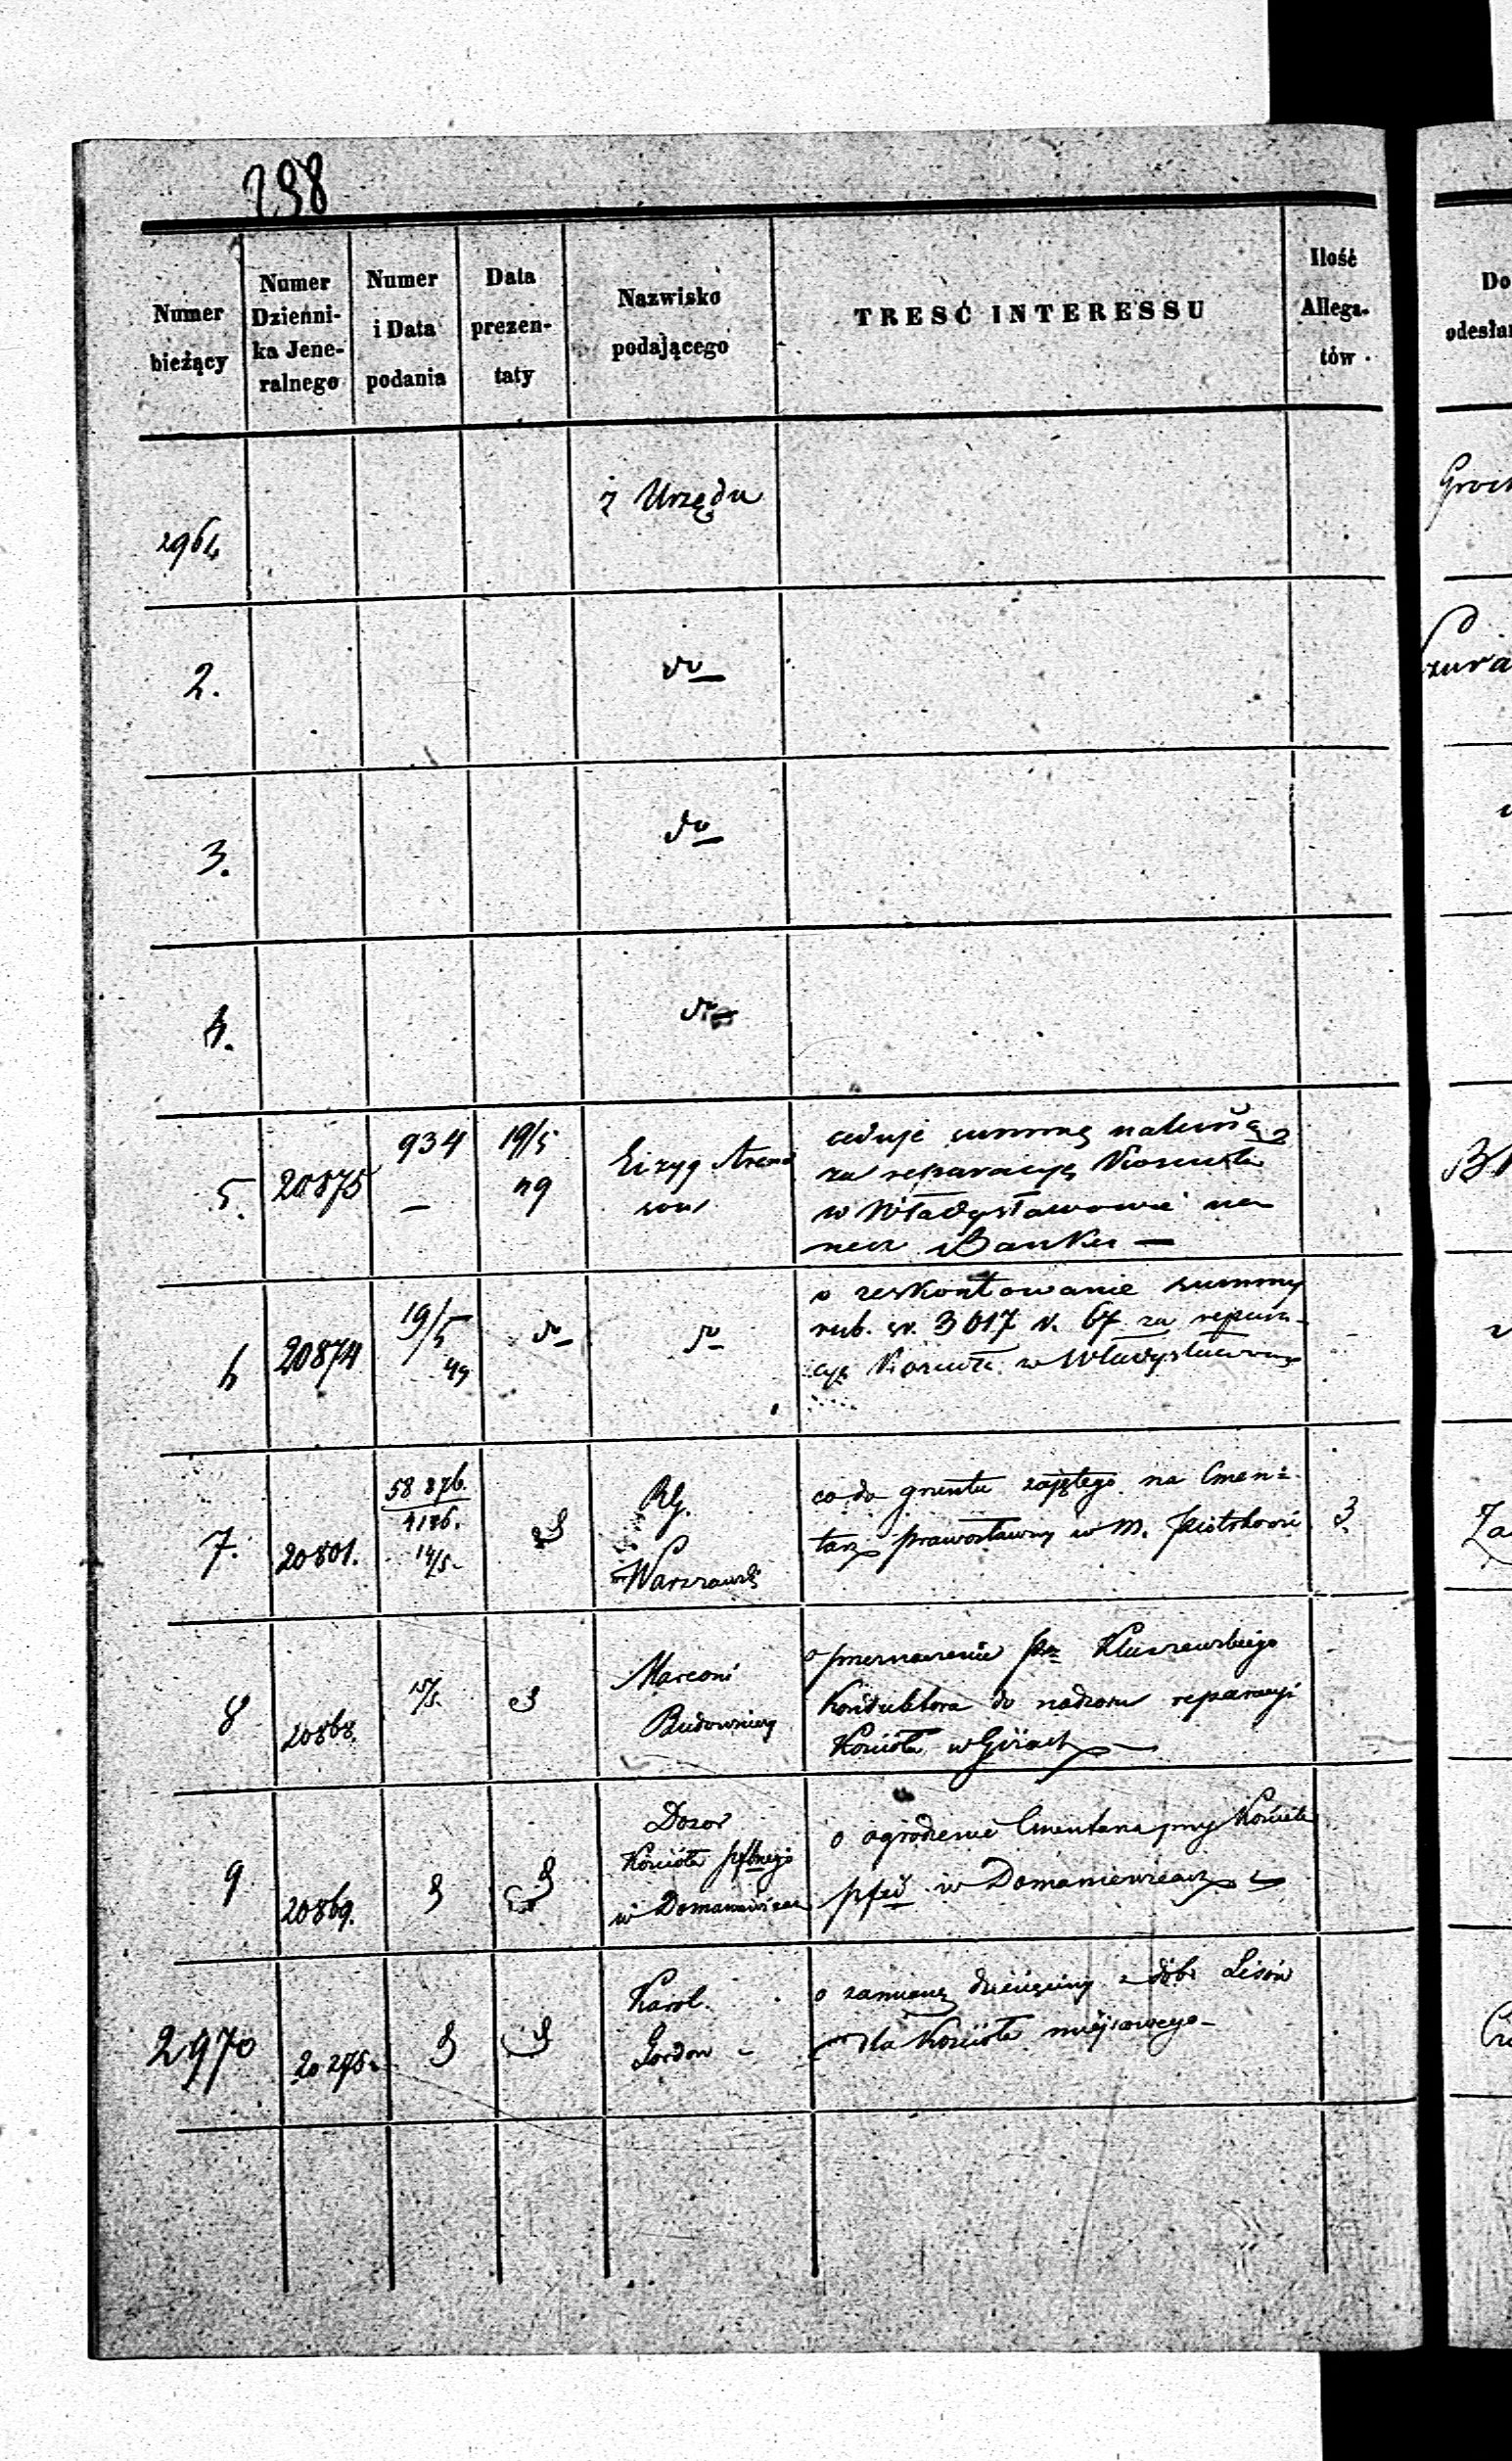 298
Numer
bieżący
Numer
Dzienni-
ka Jene-
ralnego
Numer
i Data
podania
Data
prezen-
taty
Nazwisko
podającego
TRESĆ INTERESSU
Ilość
Allega-
tów
Do
odesła
2961
z Urzędu
Groch
2.
do
3.
do
4.
do
5.
20875
934
—
19/5
49
ceduje summę
za reparacyę Kościoła
w Władysławowie na
rzecz Banku —
6
20874
19/5
49
do
do
o zeskontowanie summy
rub. sr. 3017 k. 67 za repara-
cyę Kościoła w Władysławowie
7.
20801.
58 876.
14/5
RG.
Warszawski
co do gruntu zajętego na Cmen-
tarz prawosławny w M. Piotrkowie
3.
Za
8
20868.
15/5.
Marconi
Budowniczy
o przeznaczenie Kluszewskiego
Konduktora do nadzoru reparacyi
Kościoła w Górach
9
20869.
Dozor
Kościoła
w Domaniewicach
o ogrodzenie Cmentarza przy Kościele
w Domaniewicach
2970
20275
Karol
Gordon
o zamianę dziesięciny z dóbr Lisów
dla Kościoła miejscowego